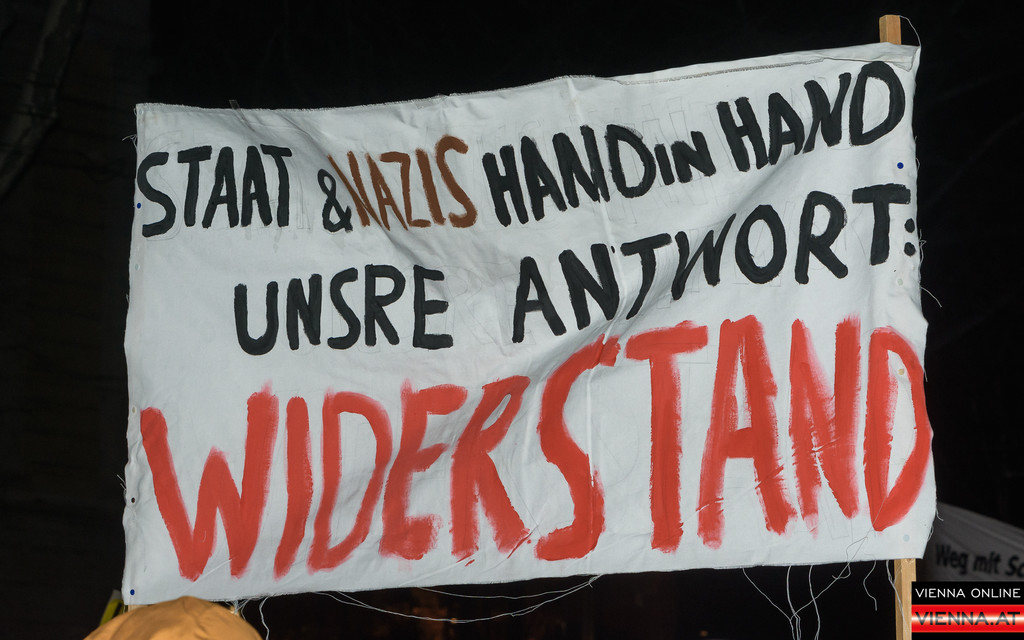 STAAT & NAZIS HAND IN HAND
UNSRE ANTWORT:
WIDERSTAND
Weg mit
VIENNA ONLINE
VIENNA.AT